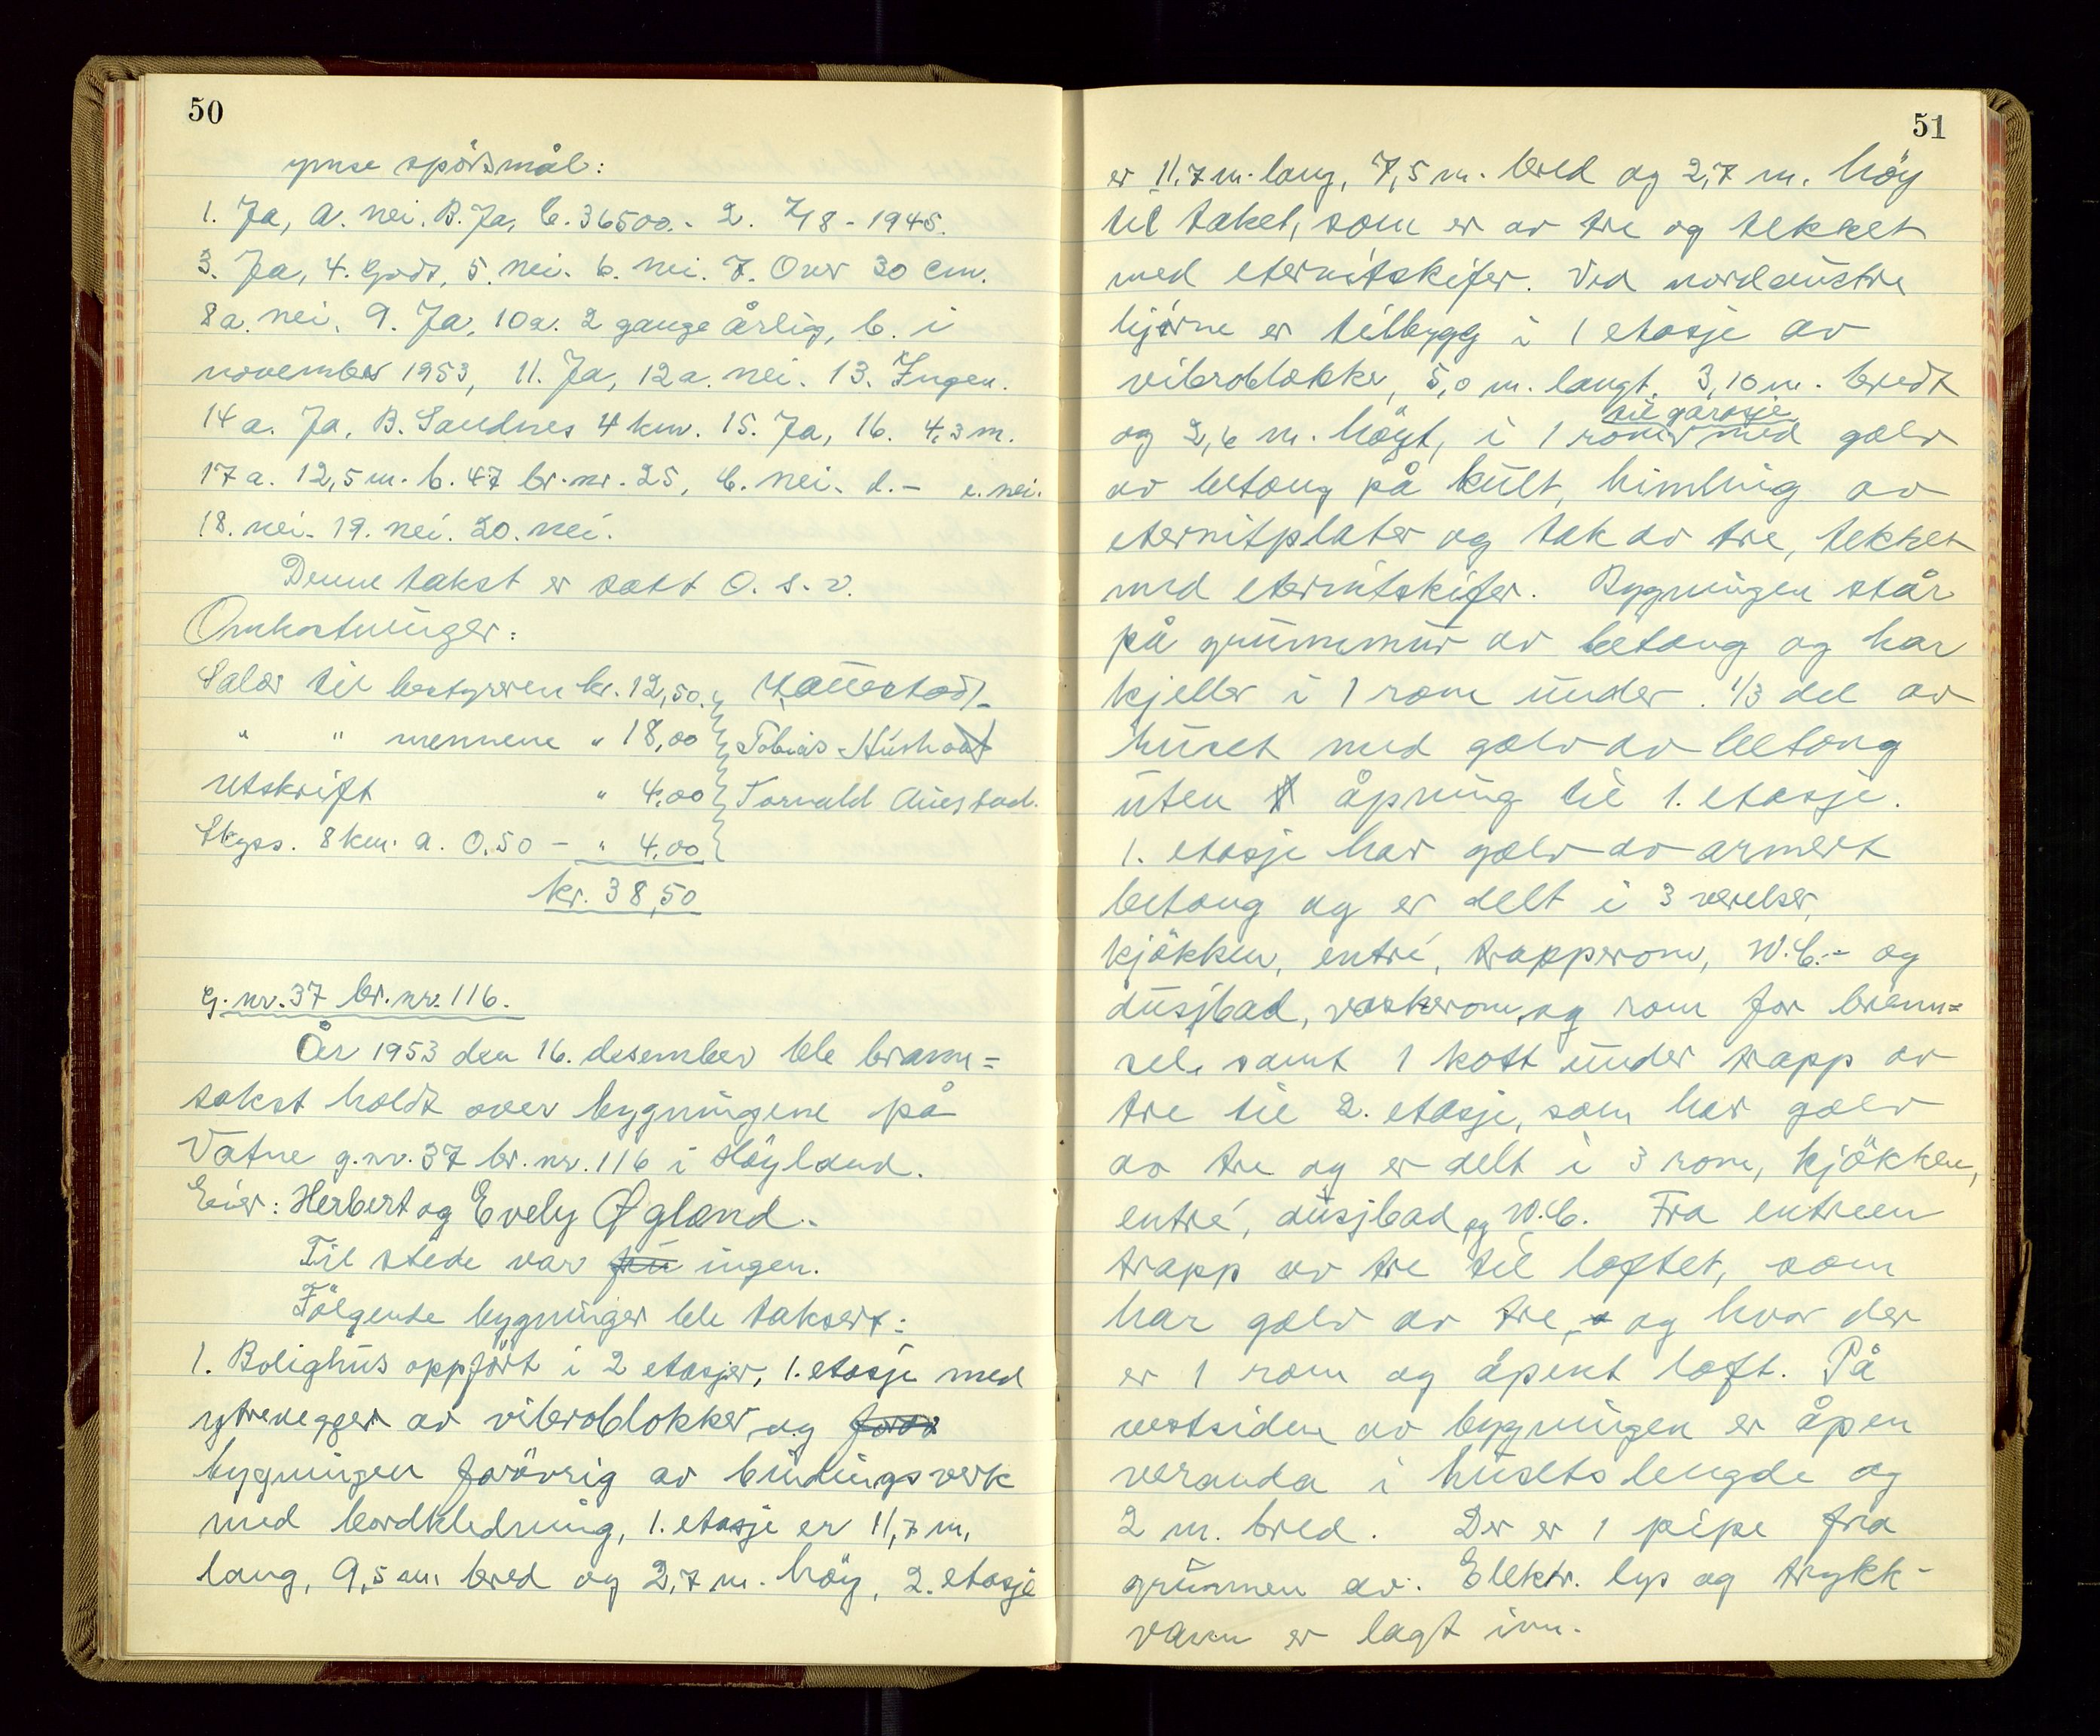 50
ymse spörsmål:
1. Ja, a. nei. B. Ja, C. 36500.- 2. 7/8 - 1945.
3. Ja, 4. Godt, 5. nei. 6. nei. 7. Over 30 cm.
8a. nei. 9. Ja, 10a. 2 gange årlig, b. i
november 1953, 11. Ja, 12a. nei. 13. Ingen.
14a. Ja, B. Sandnes 4 km. 15. Ja, 16. 4,3 m.
17a. 12,5 m. b. 47 br.nr. 25, C. nei. d. - e. nei.
18. nei. 19. nei. 20. nei.
Denne takst er satt O. s. v.
Omkostninger:
Salær til bestyreren kr. 12,50.
" " mennene " 18,00 Tobias
utskrift " 4,00 Torvald Auestad.
Skyss. 8 km. a. 0,50 - " 4,00
kr. 38,50
G. nr. 37 br. nr. 116.
År 1953 den 16. desember ble brann=
takst holdt over bygningene på
Vatne g.nr. 37 br. nr. 116 i Höyland.
Eier: Herbert og Evely Øgland.
Til stede var ingen.
Fölgende bygninger ble taksert:
1. Bolighus oppfört i 2 etasjer, 1. etasje med
yttrevegger av vibroblokker og
bygningen forövrig av bindingsverk
med bordkledning, 1. etasje er 11,7 m.
lang, 9,5 m. bred og 2,7 m. höy, 2. etasje
51
er 11,7 m. lang, 7,5 m. bred og 2,7 m. höy
til taket, som er av tre og tekket
med eternitskifer. Ved nordaustre
hjörne er tilbygg i 1 etasje av
vibroblokke, 5,0 m. langt, 3,10 m. bredt
til garasje
og 2,6 m. höyt, i 1 rom med golv
av betong på kult, himling av
eternitplater og tak av tre, tekket
med eternitskifer. Bygningen står
på grunnmur av betong og har
kjeller i 1 rom under 1/3 del av
huset med golv av betong
uten åpning til 1. etasje.
1. etasje har golv av armert
betong og er delt i 3 værelser,
kjökken, entré, trapperom, W.C.- og
dusjbad, vaskerom, og rom for bren=
sel, samt 1 kott under trapp av
tre til 2. etasje, som har golv
av tre og er delt i 3 rom, kjökken,
entré, dusjbad og W.C. Fra entreen
trapp av tre til loftet, som
har golv av tre, og hvor der
er 1 rom og åpent loft. På
vestsiden av bygningen er åpen
veranda i husets lengde og
2 m. bred. Der er 1 pipe fra
grunnen av. Elektr. lys og trykk-
vann er lagt inn.